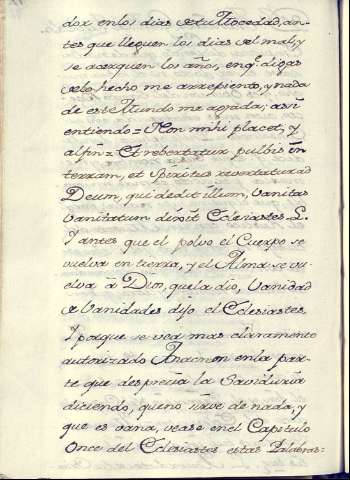 dor enlos dias detu Mocedad, an-
tes que lleguen los dias del mal, y
se acerquen los años, enq.e digas
delo hecho me arrepiento, y nada
de esse Mundo me agrada; asi
entiendo = Non mihi placet, y
al fin = Et rebertatur pulbis in
terram, et Spiritus revertatur ad
Deum, qui dedit illum, Vanitas
Vanitatum dixit Eclesiastes &.
Y antes que el polvo el Cuerpo se
vuelva en tierra, y el Alma se vu-
elva à Dios, quela dio, Vanidad
de Vanidades dijo el Eclesiastes.
Y porque se vea mas claramente
autorizado Anacreon enla par-
te que desprecia la Saviduria
diciendo, queno sirve de nada, y
que es vana, vease enel Capitulo
Once del Eclesiastes estas Palabras=